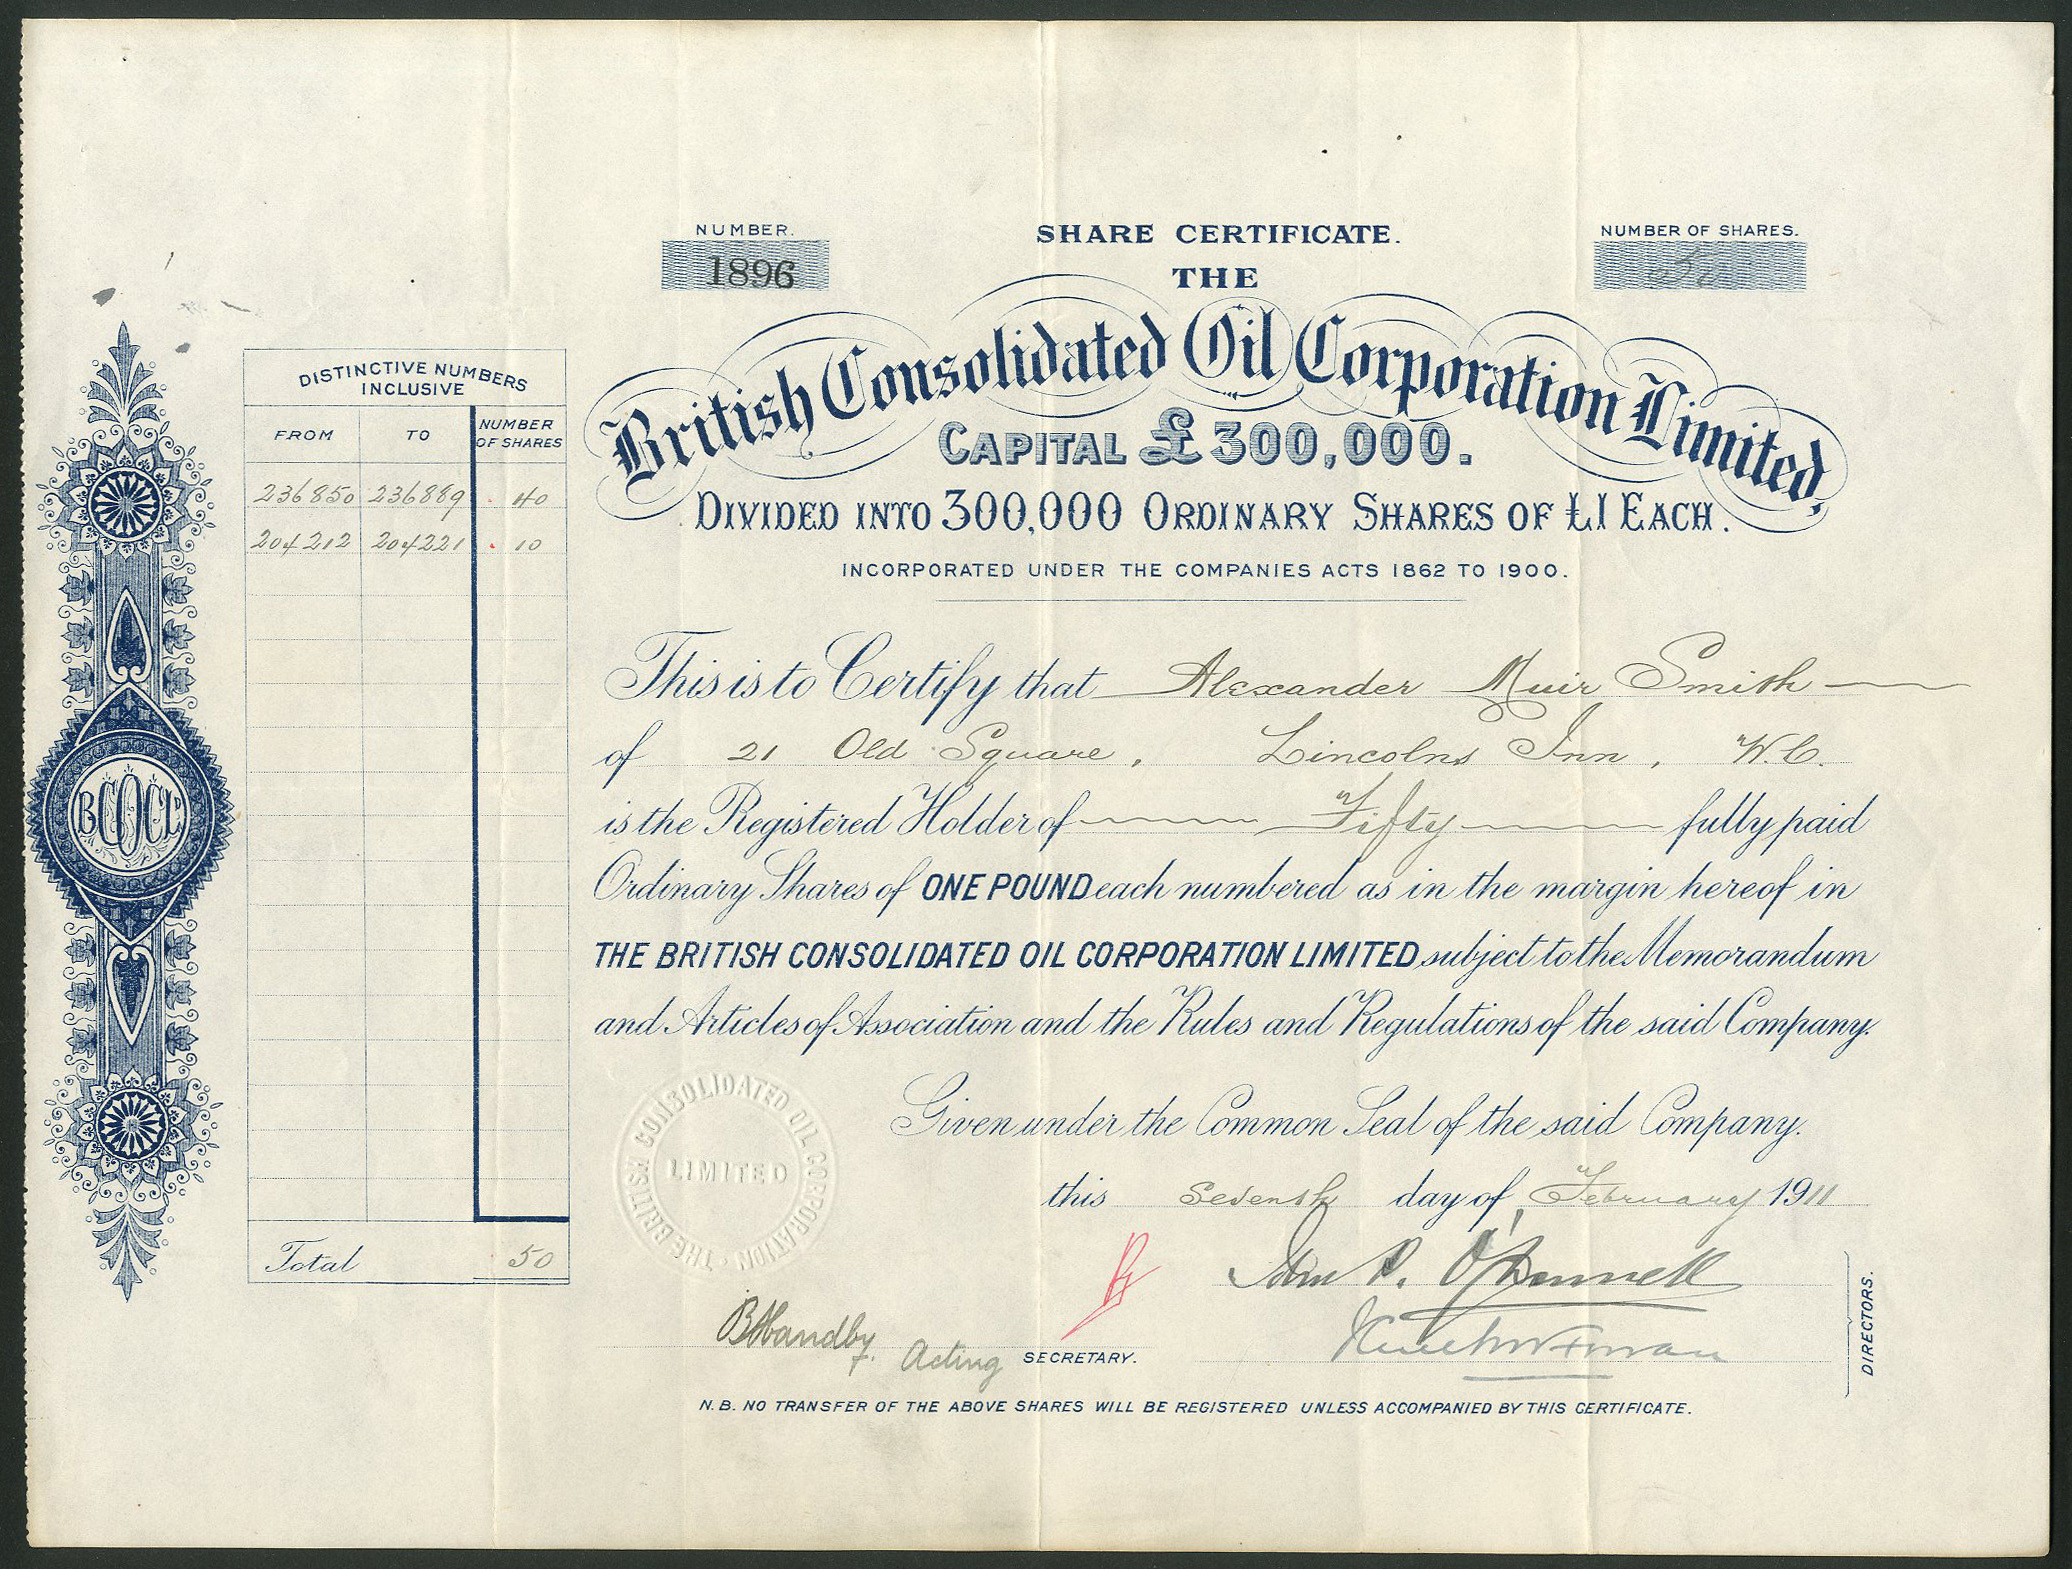 NUMBER.
1896
SHARE CERTIFICATE.
NUMBER OF SHARES.
50
THE
British Consolidated Oil Corporation Limited,
CAPITAL £300,000.
DIVIDED INTO 300,000 ORDINARY SHARES OF £1 EACH.
INCORPORATED UNDER THE COMPANIES ACTS 1862 TO 1900.
DISTINCTIVE NUMBERS
INCLUSIVE
FROM TO NUMBER OF SHARES
236850 236889 40
204212 204221 10
Total 50
BCOCLD
This is to Certify that Alexander Muir Smith
of 21 Old Square, Lincolns Inn, W.C.
is the Registered Holder of Fifty fully paid
Ordinary Shares of ONE POUND each numbered as in the margin hereof in
THE BRITISH CONSOLIDATED OIL CORPORATION LIMITED subject to the Memorandum
and Articles of Association and the Rules and Regulations of the said Company.
Given under the Common Seal of the said Company.
this Seventh day of February 1911
THE BRITISH CONSOLIDATED OIL CORPORATION
LIMITED
John P. O'Donnell
DIRECTORS.
B Handby. Acting SECRETARY.
N.B. NO TRANSFER OF THE ABOVE SHARES WILL BE REGISTERED UNLESS ACCOMPANIED BY THIS CERTIFICATE.